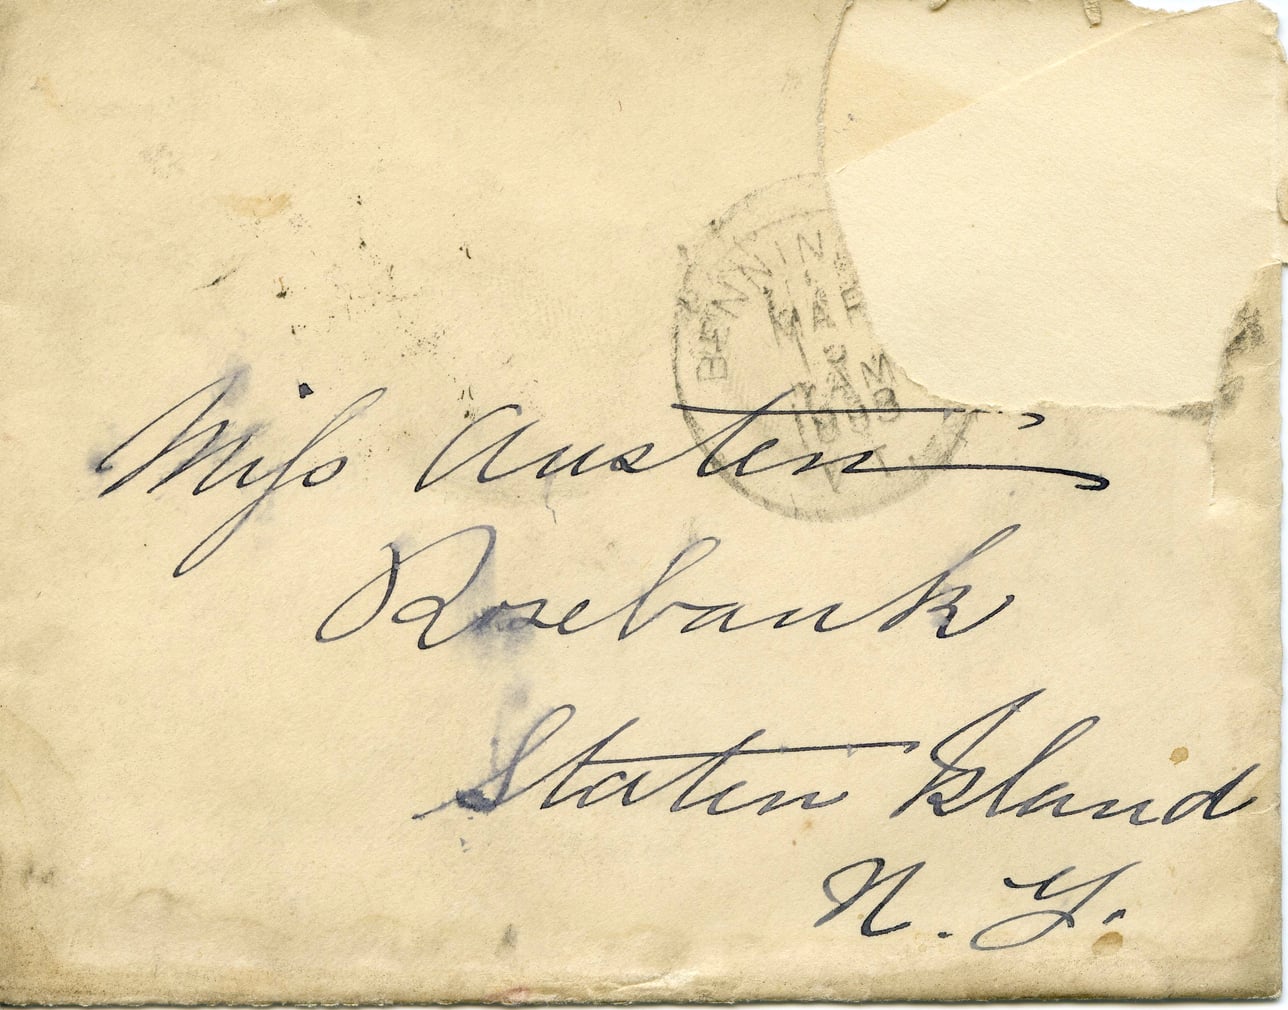 BENNIN
MAR
5
AM
VT.
Miss Austen
Rosebank
Staten Island
N. Y.